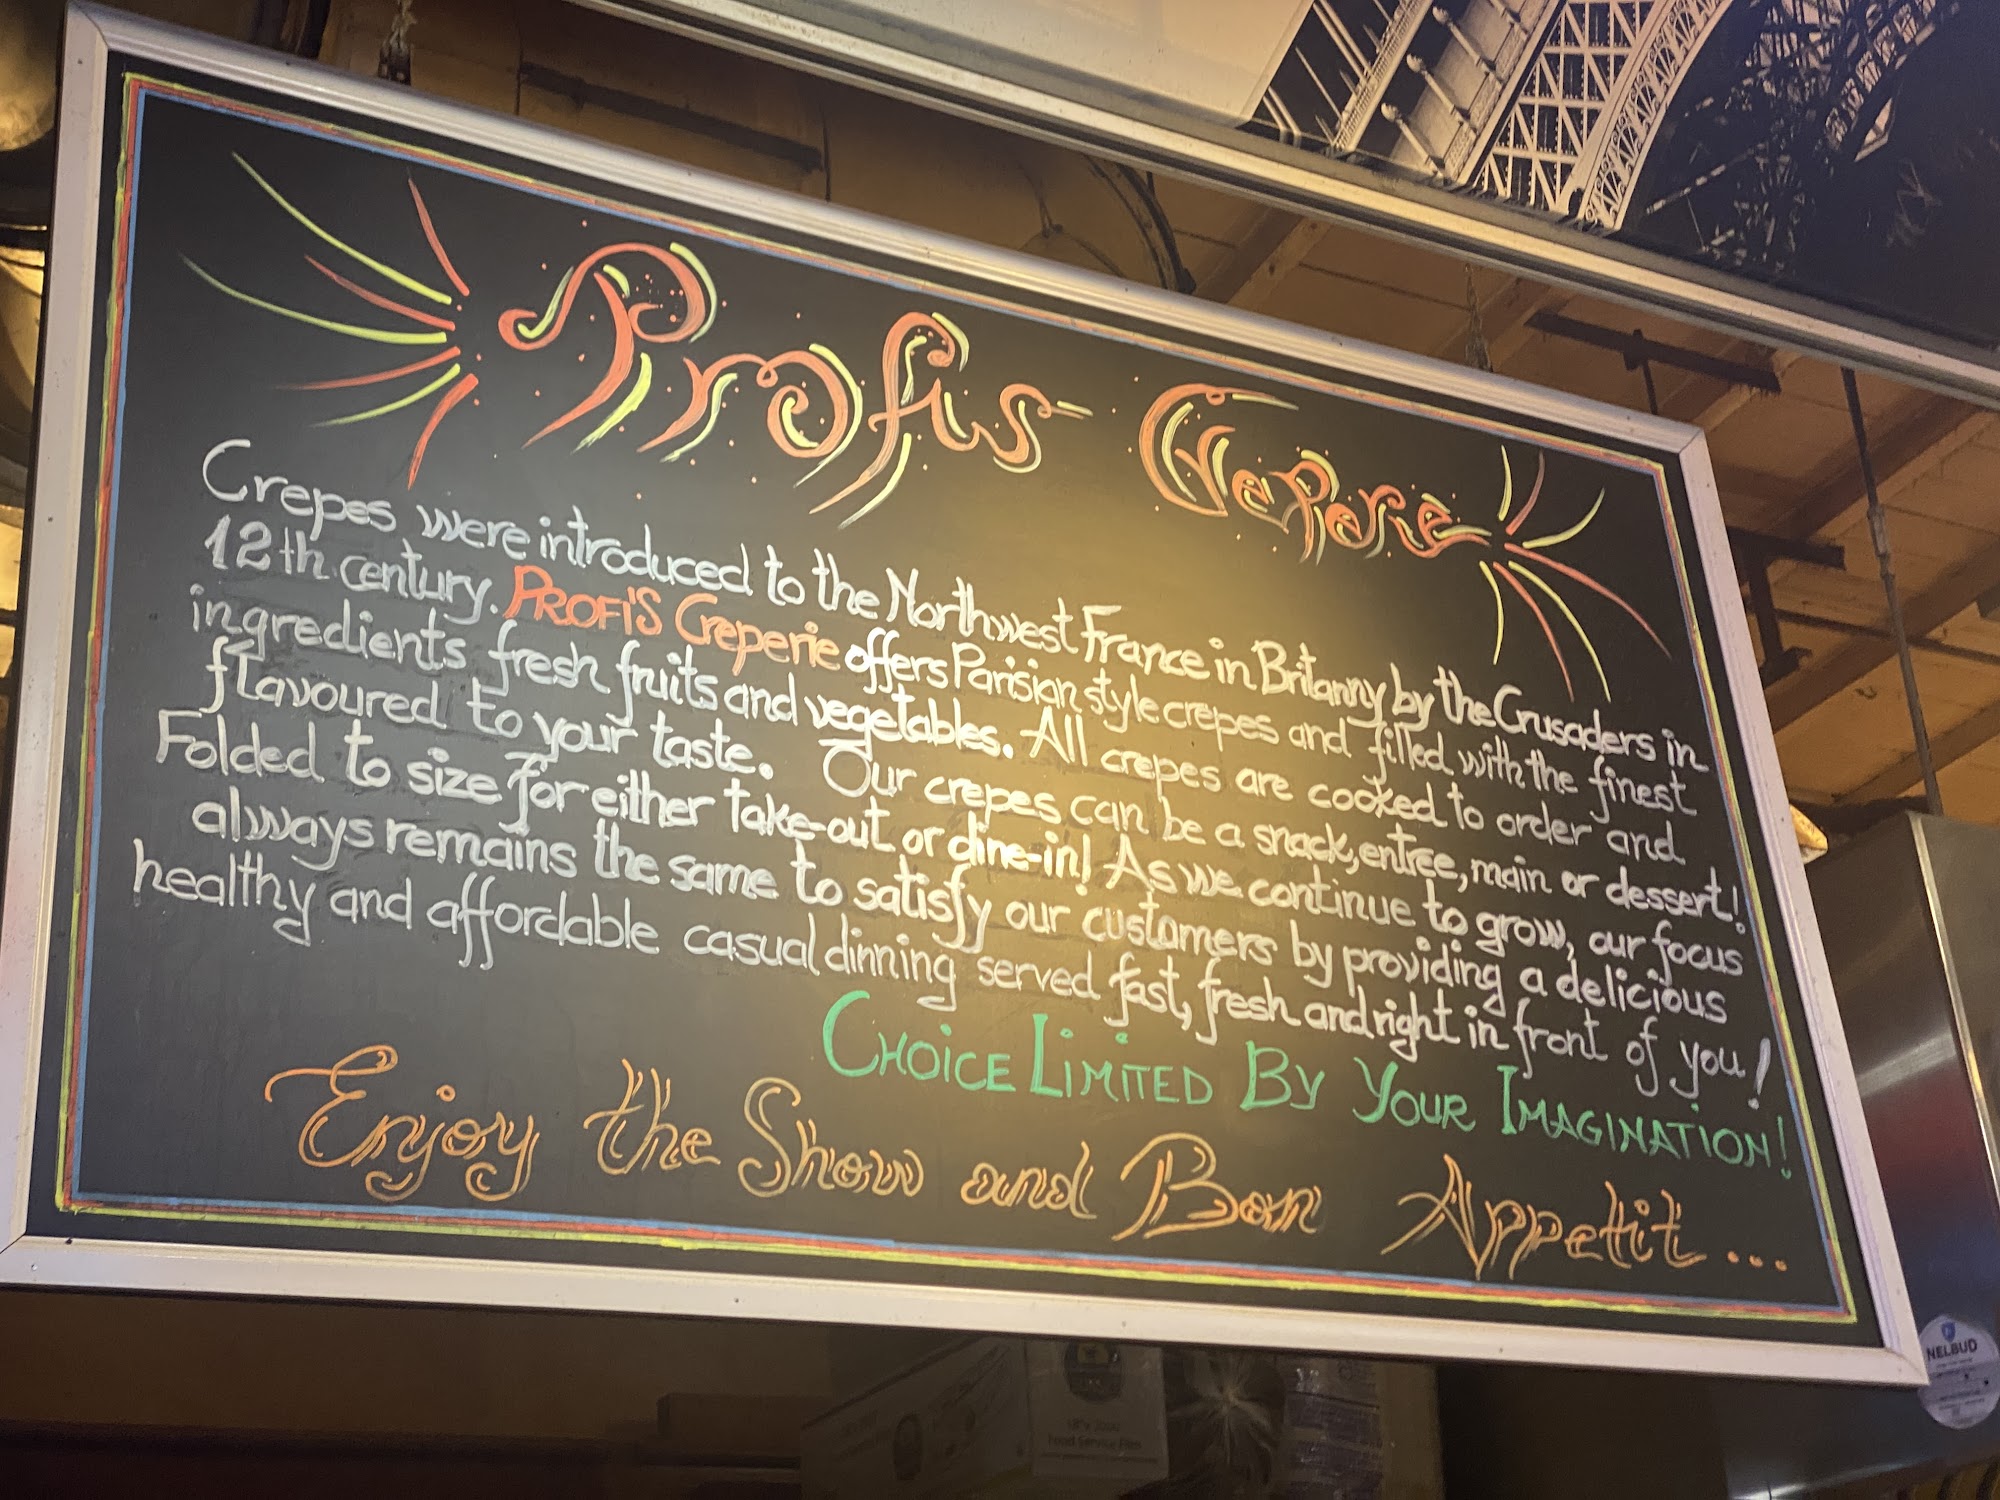 Profi's Creperie
Crepes were introduced to the Northwest France in Britanny by the Crusaders in
12th century. PROFI'S Creperie offers Parisian style crepes and filled with the finest
ingredients fresh fruits and vegetables. All crepes are cooked to order and
flavoured to your taste. Our crepes can be a snack, entree, main or dessert!
Folded to size for either take-out or dine-in! As we continue to grow, our focus
always remains the same to satisfy our customers by providing a delicious
healthy and affordable casual dinning served fast, fresh and right in front of you!
CHOICE LIMITED BY YOUR IMAGINATION!
Enjoy the Show and Bon Appetit...
NELBUD
Food Service Film